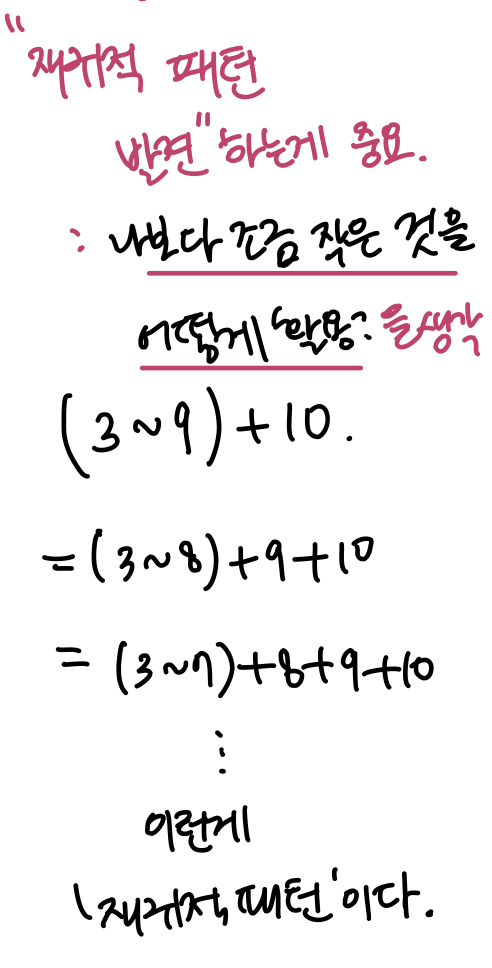 "재귀적 패턴
발견" 하는게 중요.
: 나보다 조금 작은 것을
어떻게 활용? 을 생각
(3~9)+10.
=(3~8)+9+10
=(3~7)+8+9+10
⋮
이런게
'재귀적 패턴'이다.